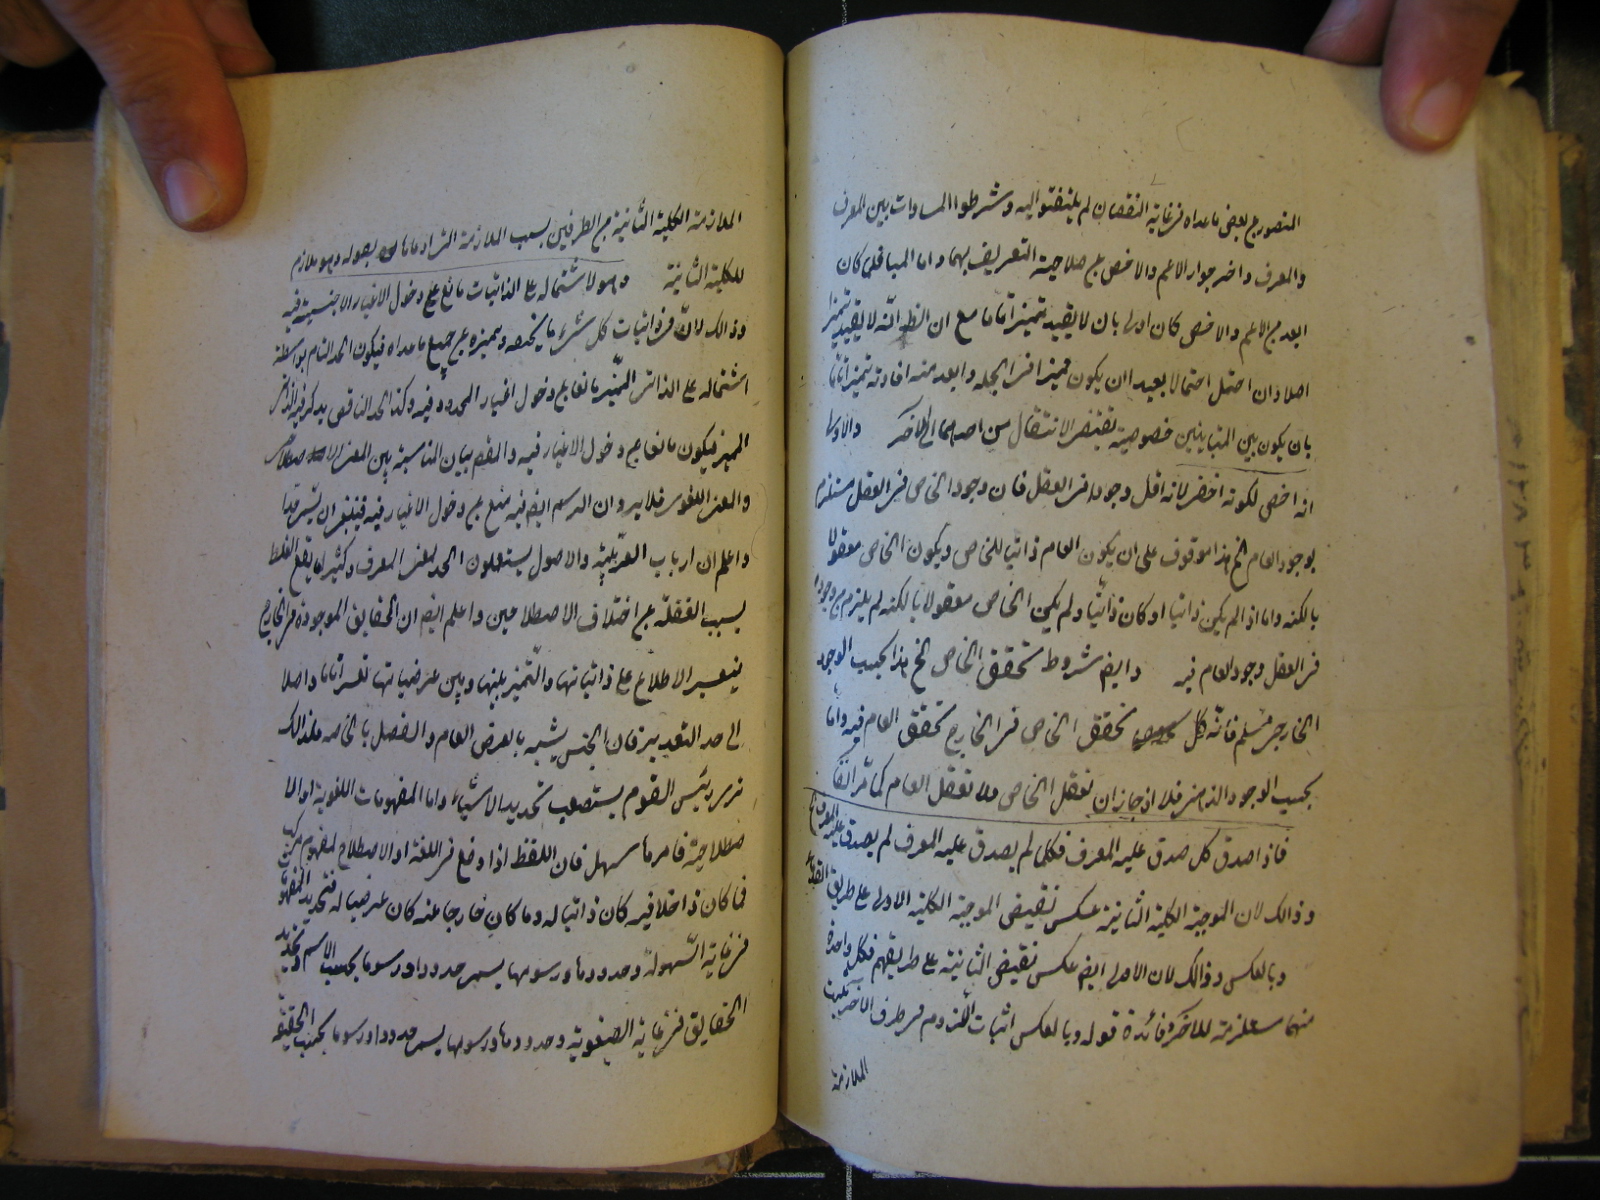 المتصور مع بعض ما عداه في غاية النقصان لم يلتفتوا اليه وشرطوا المساوات بين المعرف
والمعرف واخرجوا الاعم والاخص عن صلاحية التعريف بهما واما المباين كان
ابعد من الاعم والاخص كان اولى بان لا يفيد تميزا تاما مع ان الظ انه لا يفيد تميزا
اصلا وان احتمل احتمالا بعيدا ان يكون مميزا في الجملة وابعد منه افادته تميزا تاما
بان يكون بين المتباينين خصوصية تقتضي الانتقال من احدهما الى الاخر والاولى
انه اخص لكونه اخفى لانه اقل وجودا في العقل فان وجود الخاص في العقل مستلزم
لوجود العام الخ هذا موقوف على ان يكون العام ذاتيا للخاص ويكون الخاص معقولا
بالكنه واما اذا لم يكن ذاتيا او كان ذاتيا ولم يكن الخاص معقولا بالكنه لم يلزم من وجوده
في العقل وجود العام فيه وايض شروط تحقق الخاص الخ هذا بحسب الوجود
الخارجي مسلم فانه كل تحقق الخاص في الخارج تحقق العام فيه واما
بحسب الوجود الذهني فلا اذ جاز ان يعقل الخاص ولا تعقل العام كما مر آنفا
فاذا صدق كل صدق عليه المعرف فكلما لم يصدق عليه المعرف لم يصدق عليه المعرف
وذالك لان الموجبة الكلية الثانية عكس نقيض الموجبة الكلية الاولى على طريق القدماء
وبالعكس وذالك لان الاولى ايض عكس نقيض الثانية على طريقهم فكل واحدة
منهما مستلزمة للاخرى وفائدة قوله وبالعكس اثبات اللزوم من طرف الآخر
الملازمة
الملازمة الكلية الثانية من الطرفين بسبب الملازمة التي ارادها بقوله وهو ملازم
للكلية الثانية وهو لاشتماله على الذاتيات مانع عن دخول الاغيار الاجنبية فيه
وذالك لان في ذاتيات كل شيء ما يخصه ويميزه عن جميع ما عداه فيكون الحد التام بواسطة
اشتماله على الذاتي المميز مانعا عن دخول اغيار المحدود فيه وكذا الحد الناقص يذكر فيه الذاتي
المميز فيكون مانعا عن دخول الاغيار فيه والمقص بيان المناسبة بين المعنى الاصطلاحي
والمعنى اللغوي فلا يرد ان الرسم ايض فيه منع عن دخول الاغيار فيه فينبغي ان يسمى حدا
واعلم ان ارباب العربية والاصول يستعملون الحد بمعنى المعرف وكثيرا ما يقع الغلط
بسبب الغفلة عن اختلاف الاصطلاحين واعلم ايض ان الحقايق الموجودة في الخارج
يتعسر الاطلاع على ذاتياتها والتميز بينها وبين عرضياتها تعسرا تاما واصلا
الى حد التعذير فان الجنس يشبه بالعرض العام والفصل بالخاصة فلذالك
ترى رئيس القوم يستصعب تحديد الاشياء واما المفهومات اللغوية اوالا
صطلاحية فامرها سهل فان اللفظ اذا وضع في اللغة او الاصطلاح لمفهوم مركب
فما كان داخلا فيه كان ذاتيا له وما كان خارجا عنه كان عرضيا له فتحديد المفهومات
في غاية السهولة وحدودها ورسومها يسمى حدودا ورسوما بحسب الاسم وتحديد
الحقايق في غاية الصعوبة وحدودها ورسومها يسمى حدودا ورسوما بحسب الحقيقة